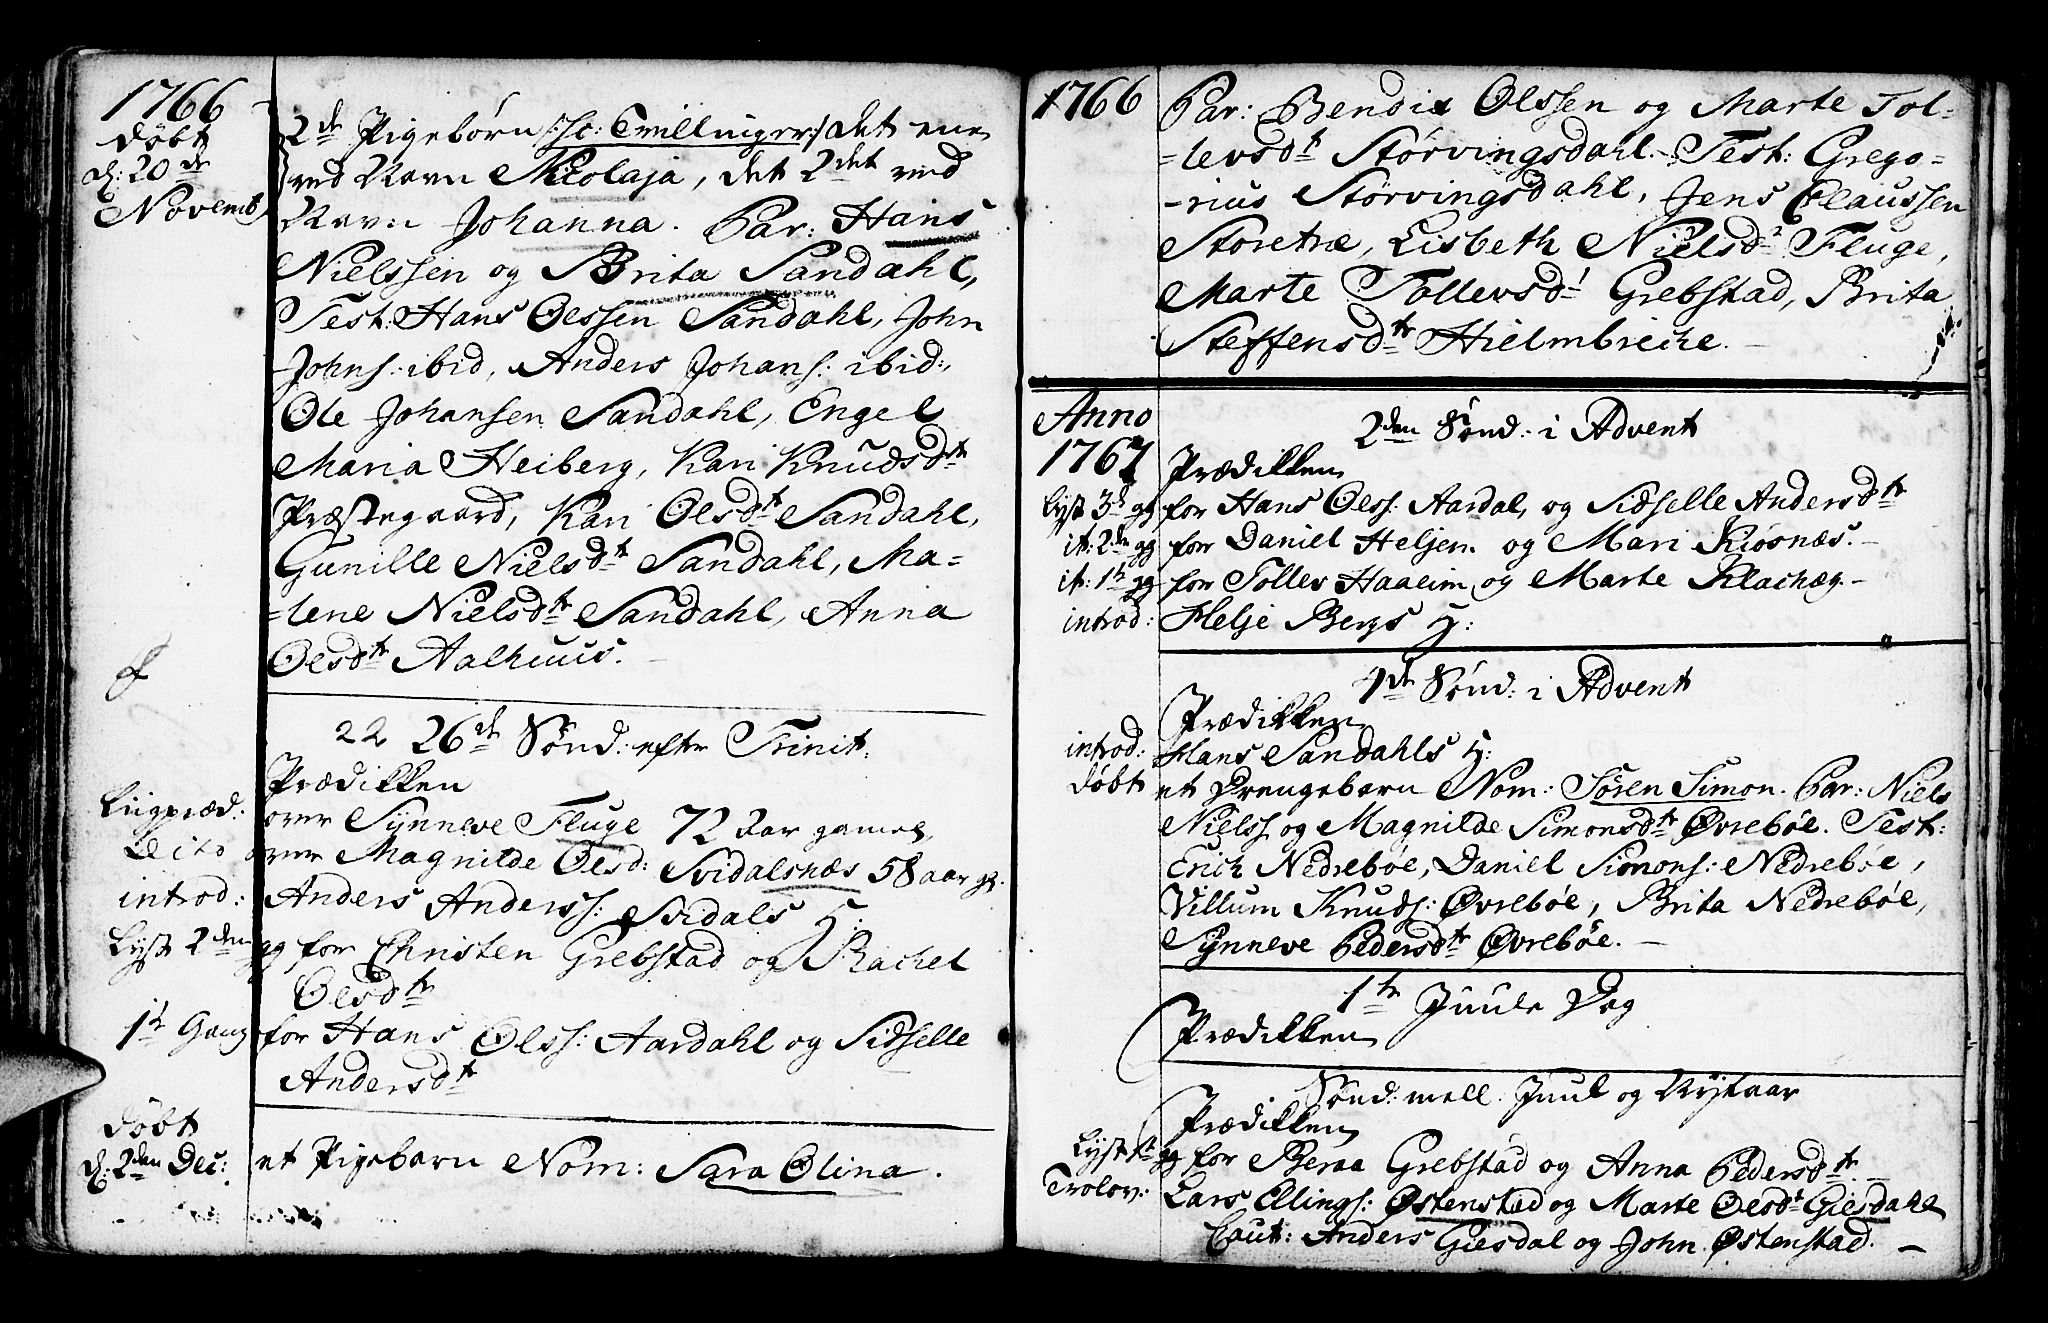 1766
Døbt
d: 20de
Novemb
2de Pigebørn /:sc: Tvillinger:/ det ene
ved Navn Nicolaja, det 2det ved
Navn Johanna. Par: Hans
Nielssen og Brita Sandahl,
Test: Hans Olssen Sandahl, John
Johns: ibid, Anders Johans: ibid:,
Ole Johansen Sandahl, Engel
Maria Heiberg, Kari Knudsdtr
Præstegaard, Kari Olsdtr Sandahl,
Gunille Nielsdtr Sandahl, Ma=
=lene Nielsdtr Sandahl, Anna
Olsdtr Aalhuus.
22 26de Sønd: efter Trinit:
Prædikken
Liigpræd: over Synneve Fluge 72 Aar gamel,
Dito over Magnilde Olsd: Svidalsnæs 58 aar g:
introd: Anders Anderss: Svidals H:
Lyst 2den gg for Christen Grebstad og Rachel
Olsdtr
1te Gang for Hans Olss: Aardahl og Sidselle
Andersdtr
Døbt
d: 2den Dec: et Pigebarn Nom: Sara Olina.
1766
Par: Bendix Olssen og Marte Tol=
=levsdtr Størvingsdahl. Test: Grego=
=rius Størvingsdahl, Jens Claussen
Storetræ, Lisbeth Nielsdr Fluge,
Marte Tollevsdt Grebstad, Brita
Steffensdtr Hielmbreche.
Anno
1767
2den Sønd: i Advent
Prædikken
Lyst 3de gg for Hans Olss: Aardal, og Sidselle Andersdtr
it: 2den gg for Daniel Heljem og Mari Kiøsnæs.
it: 1te gg for Tollev Haaeim og Marte Klachæg.
introd: Helje Bergs H:
4de Sønd: i Advent
Prædikken
introd: Hans Sandahls H:
Døbt et Drengebarn Nom: Søren Simon. Par: Niels
Nielss: og Magnilde Simonsdtr Øvrebøe. Test:
Erich Nedrebøe, Daniel Simons: Nedrebøe,
Villum Knuds: Øvrebøe, Brita Nedrebøe,
Synneve Pedersdtr Øvrebøe.
1te Juule Dag
Prædikken
Sønd: mell. Juul og Nytaar
Prædikken
Lyst 1te gg for Beraa Grebstad og Anna Pedersdtr.
Trolov: Lars Ellings: Østenstad og Marte Olsdt Giesdahl
Caut: Anders Giesdal og John Østenstad.